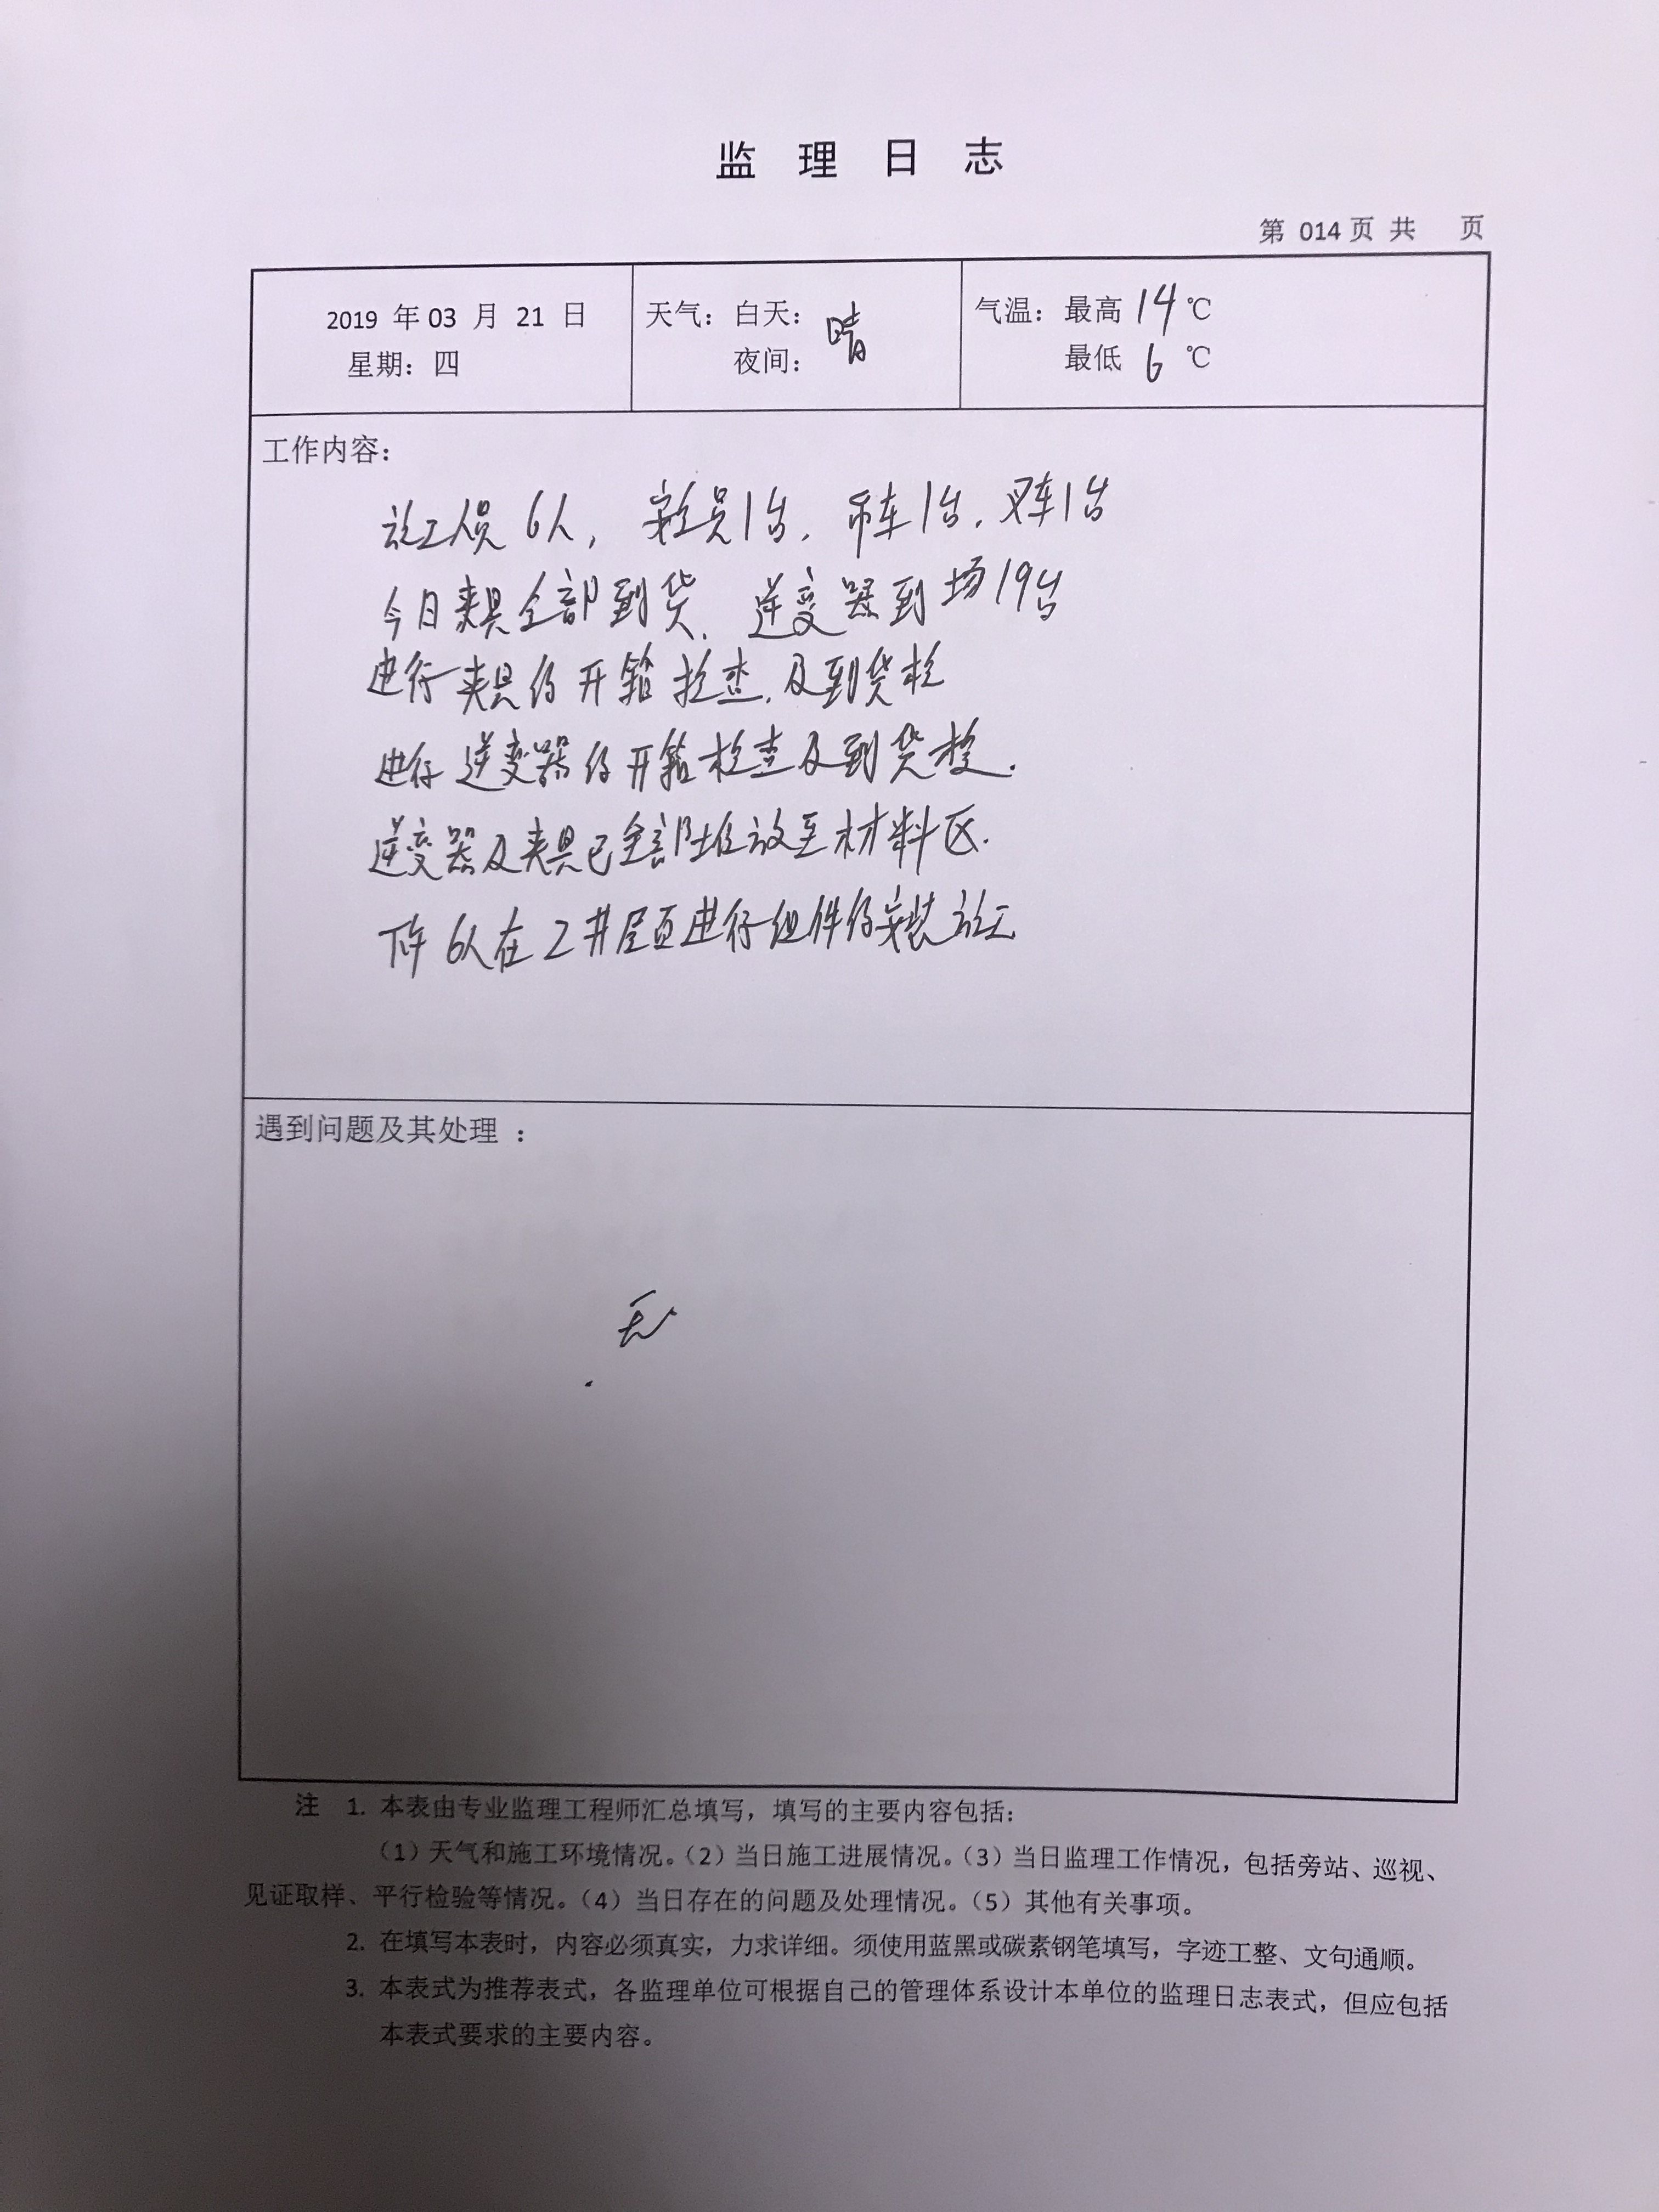 监 理 日 志
第 014 页 共 页
2019 年 03 月 21 日
星期：四
天气：白天：晴
夜间：
气温：最高 14 ℃
最低 6 ℃
工作内容：
施工人员 6人， 安全员1名，吊车1台，叉车1台
今日夹具全部到货，逆变器到场19台
进行夹具的开箱检查，及到货检
进行逆变器的开箱检查及到货检.
逆变器及夹具已全部堆放至材料区.
下午 6人在2#屋面进行组件的安装施工
遇到问题及其处理 ：
无
注 1. 本表由专业监理工程师汇总填写，填写的主要内容包括：
（1）天气和施工环境情况。（2）当日施工进展情况。（3）当日监理工作情况，包括旁站、巡视、
见证取样、平行检验等情况。（4）当日存在的问题及处理情况。（5）其他有关事项。
2. 在填写本表时，内容必须真实，力求详细。须使用蓝黑或碳素钢笔填写，字迹工整、文句通顺。
3. 本表式为推荐表式，各监理单位可根据自己的管理体系设计本单位的监理日志表式，但应包括
本表式要求的主要内容。